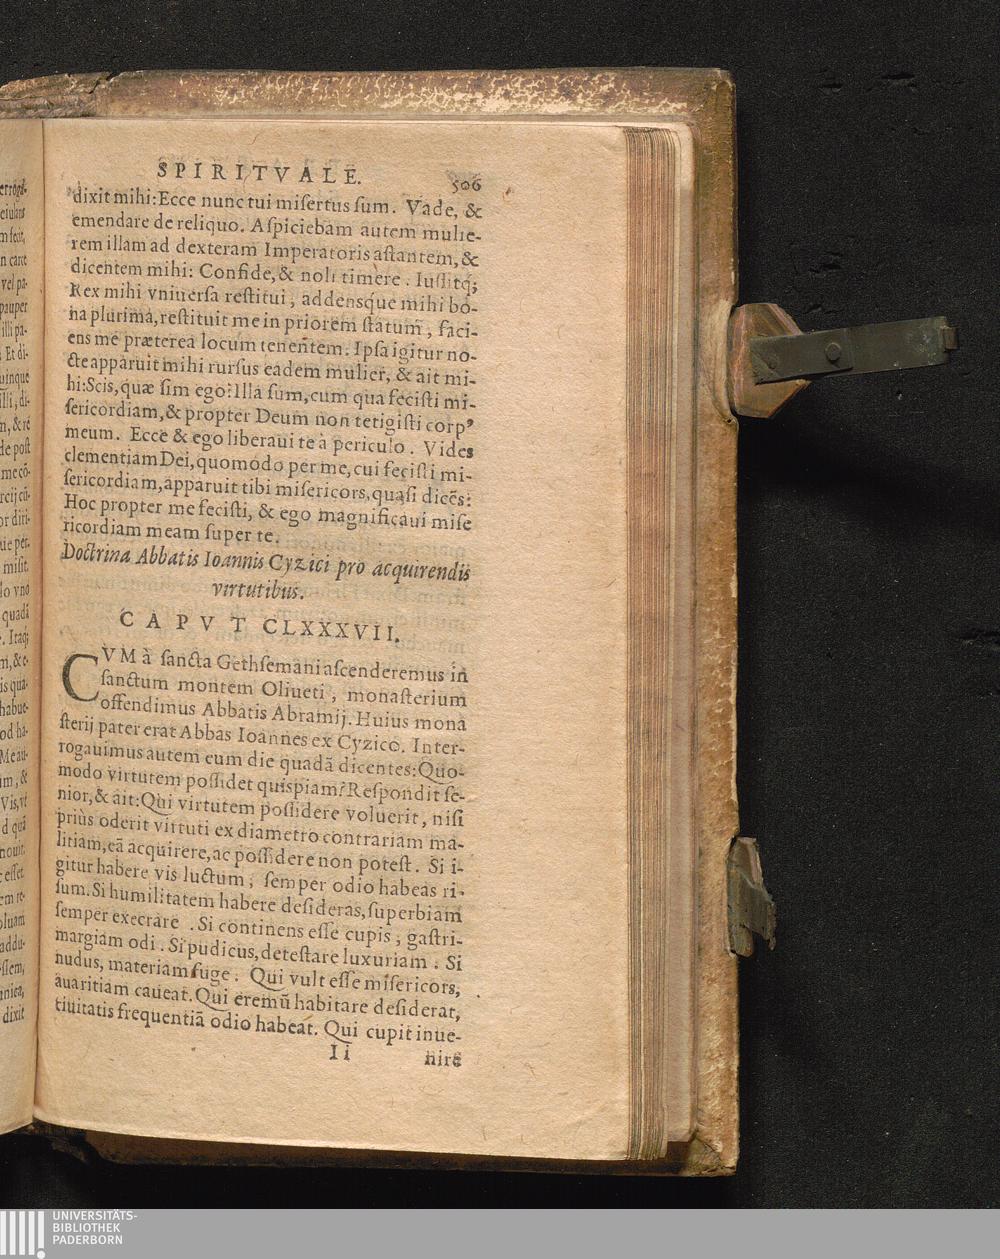 SPIRITVALE.
506
dixit mihi: Ecce nunc tui miſertus ſum. Vade, &
emendare de reliquo. Aſpiciebam autem mulie-
rem illam ad dexteram Imperatoris aſtantem, &
dicentem mihi: Confide, & noli timere. Iuſſitq;
Rex mihi vniuerſa reſtitui, addensque mihi bo-
na plurima, reſtituit me in priorem ſtatum, faci-
ens me præterea locum tenentem. Ipſa igitur no-
cte apparuit mihi rurſus eadem mulier, & ait mi-
hi: Scis, quæ ſim ego? Illa ſum, cum qua feciſti mi-
ſericordiam, & propter Deum non tetigiſti corpꝰ
meum. Ecce & ego liberaui te à periculo. Vides
clementiam Dei, quomodo per me, cui feciſti mi-
ſericordiam, apparuit tibi miſericors, quaſi dicẽs:
Hoc propter me feciſti, & ego magnificaui miſe
ricordiam meam ſuper te.
Doctrina Abbatis Ioannis Cyzici pro acquirendis
virtutibus.
CAPVT CLXXXVII.
CVM à ſancta Gethſemani aſcenderemus in
ſanctum montem Oliueti, monaſterium
offendimus Abbatis Abramij. Huius mona
ſterij pater erat Abbas Ioannes ex Cyzico. Inter-
rogauimus autem eum die quadã dicentes: Quo-
modo virtutem poſſidet quiſpiam? Reſpondit ſe-
nior, & ait: Qui virtutem poſſidere voluerit, niſi
priùs oderit virtuti ex diametro contrariam ma-
litiam, eã acquirere, ac poſſidere non poteſt. Si i-
gitur habere vis luctum, ſemper odio habeas ri-
ſum. Si humilitatem habere deſideras, ſuperbiam
ſemper execrare. Si continens eſſe cupis, gaſtri-
margiam odi. Si pudicus, deteſtare luxuriam. Si
nudus, materiam fuge. Qui vult eſſe miſericors,
auaritiam caueat. Qui eremũ habitare deſiderat,
ciuitatis frequentiã odio habeat. Qui cupit inue-
Ii
nire
UNIVERSITÄTS-
BIBLIOTHEK
PADERBORN